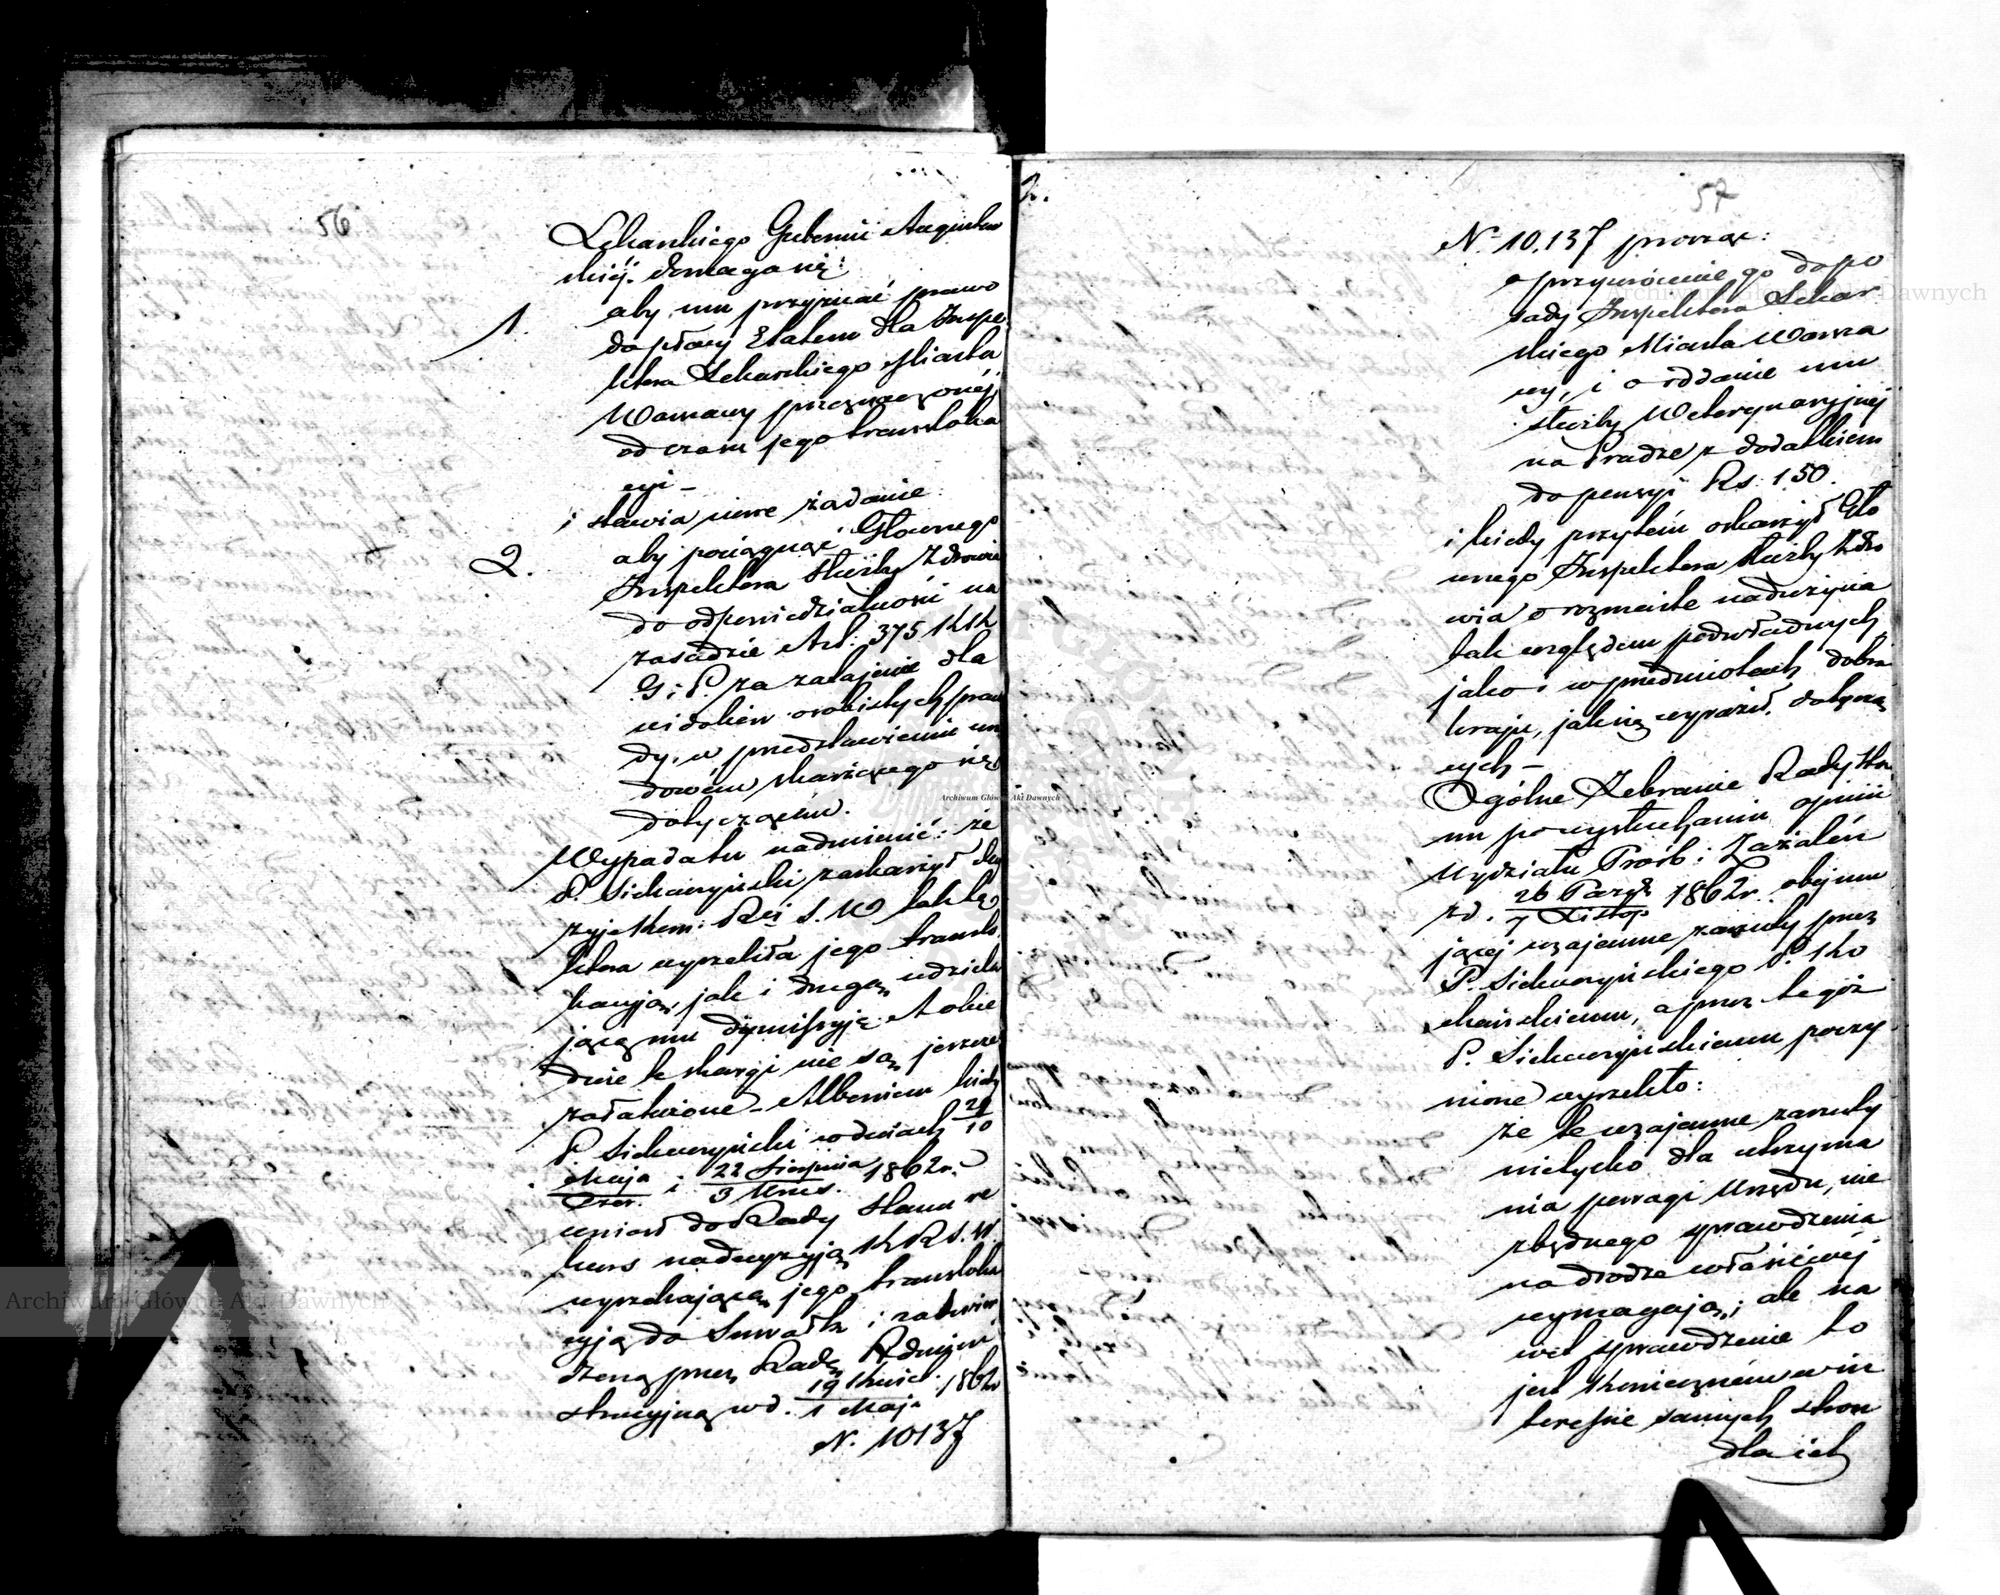 56
Lekarskiego Gubernii Augustow
skiéj. domaga się:
1. aby mu przyznać prawo
do płacy Etatem dla Inspe
ktora Lekarskiego Miasta
Warszawy przeznaczonéj,
od czasu jego transloka
cyi –
i stawia nowe żądanie:
2. aby pociągnąć Głównego
Inspektora Służby Zdrowia
do odpowiedzialności na
zasadzie Art: 375 KK
G i P. za zatajenie dla
widoków osobistych praw
dy, w przedstawieniu urz
dowém skarżącego się
dotyczącém.
Wypadału nadmienić: że
P. Sickaczyński zaskarżył decy
zyje Kom: Rz: S. W. tak tę,
która wyrzekła jego translo
kacyją, jak i drugą udziela
jącą mu dymissyję. Aobie
dwie te skargi nie są jeszcze
załatwione – Albowiem kiedy
P. w dniach 28/10
Maja/Czer. i 22 Sierpnia/3 Wrześ. 1862r.
wniosł do Rady Stanu re
kurs na decyzyją K R S. W.
wyrzekającą jego transloka
cyją do Suwałk i zatwier
dzoną przez Radę Admini
stracyjną w d. 19 Kwiet./1 Maja 1862
N. 10137
57
N. 10,137 prosząc:
o przywrócenie go do po
sady Inspektora Lekar
skiego Miasta Warsza
wy, i o oddanie mu
służby Weterynaryjnéj
na Pradze z dodatkiem
do pensyi Rs. 150.
i kiedy przytém oskarżył Głó
wnego Inspektora Służby Zdro
wia o rozmaite nadużycia
tak względem podwładnych
jako i w przedmiotach dobra
kraju, jak się wyraził, dotyczą
cych –
Ogólne Zebranie Rady Sta
nu po wysłuchaniu opinii
Wydziału Prośb i Zażaleń
z d. 26 Paźdz/7 Listop 1862r. obejmu
jącej wzajemne zarzuty przez
P. P. Ko
chańskiemu, a przez tegoż
P. poczy
nione wyrzekło:
że te wzajemne zarzuty
nietylko dla utrzyma
nia powagi Urzędu, nie
zbędnego sprawdzenia
na drodze właściwéj
wymagają; ale na
wet sprawdzenie to
jest Koniecznem w in
teressie samych stron
dla ich